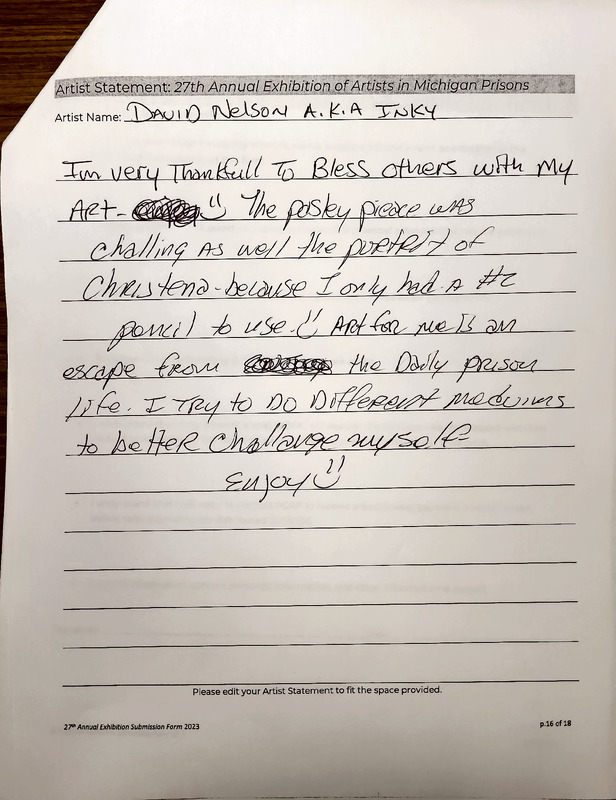 Artist Statement: 27th Annual Exhibition of Artists in Michigan Prisons
Artist Name: DAVID Nelson A.K.A INKY
I'm very Thankfull To Bless others with My
ART- The pasley pieace was
challing As well the portrit of
Christena - because I only had A #2
pencil to use. Art for me Is an
escape from the Daily prison
life. I TRY to DO Different mediums
to better challange myself-
Enjoy
Please edit your Artist Statement to fit the space provided.
27th Annual Exhibition Submission Form 2023
p.16 of 18